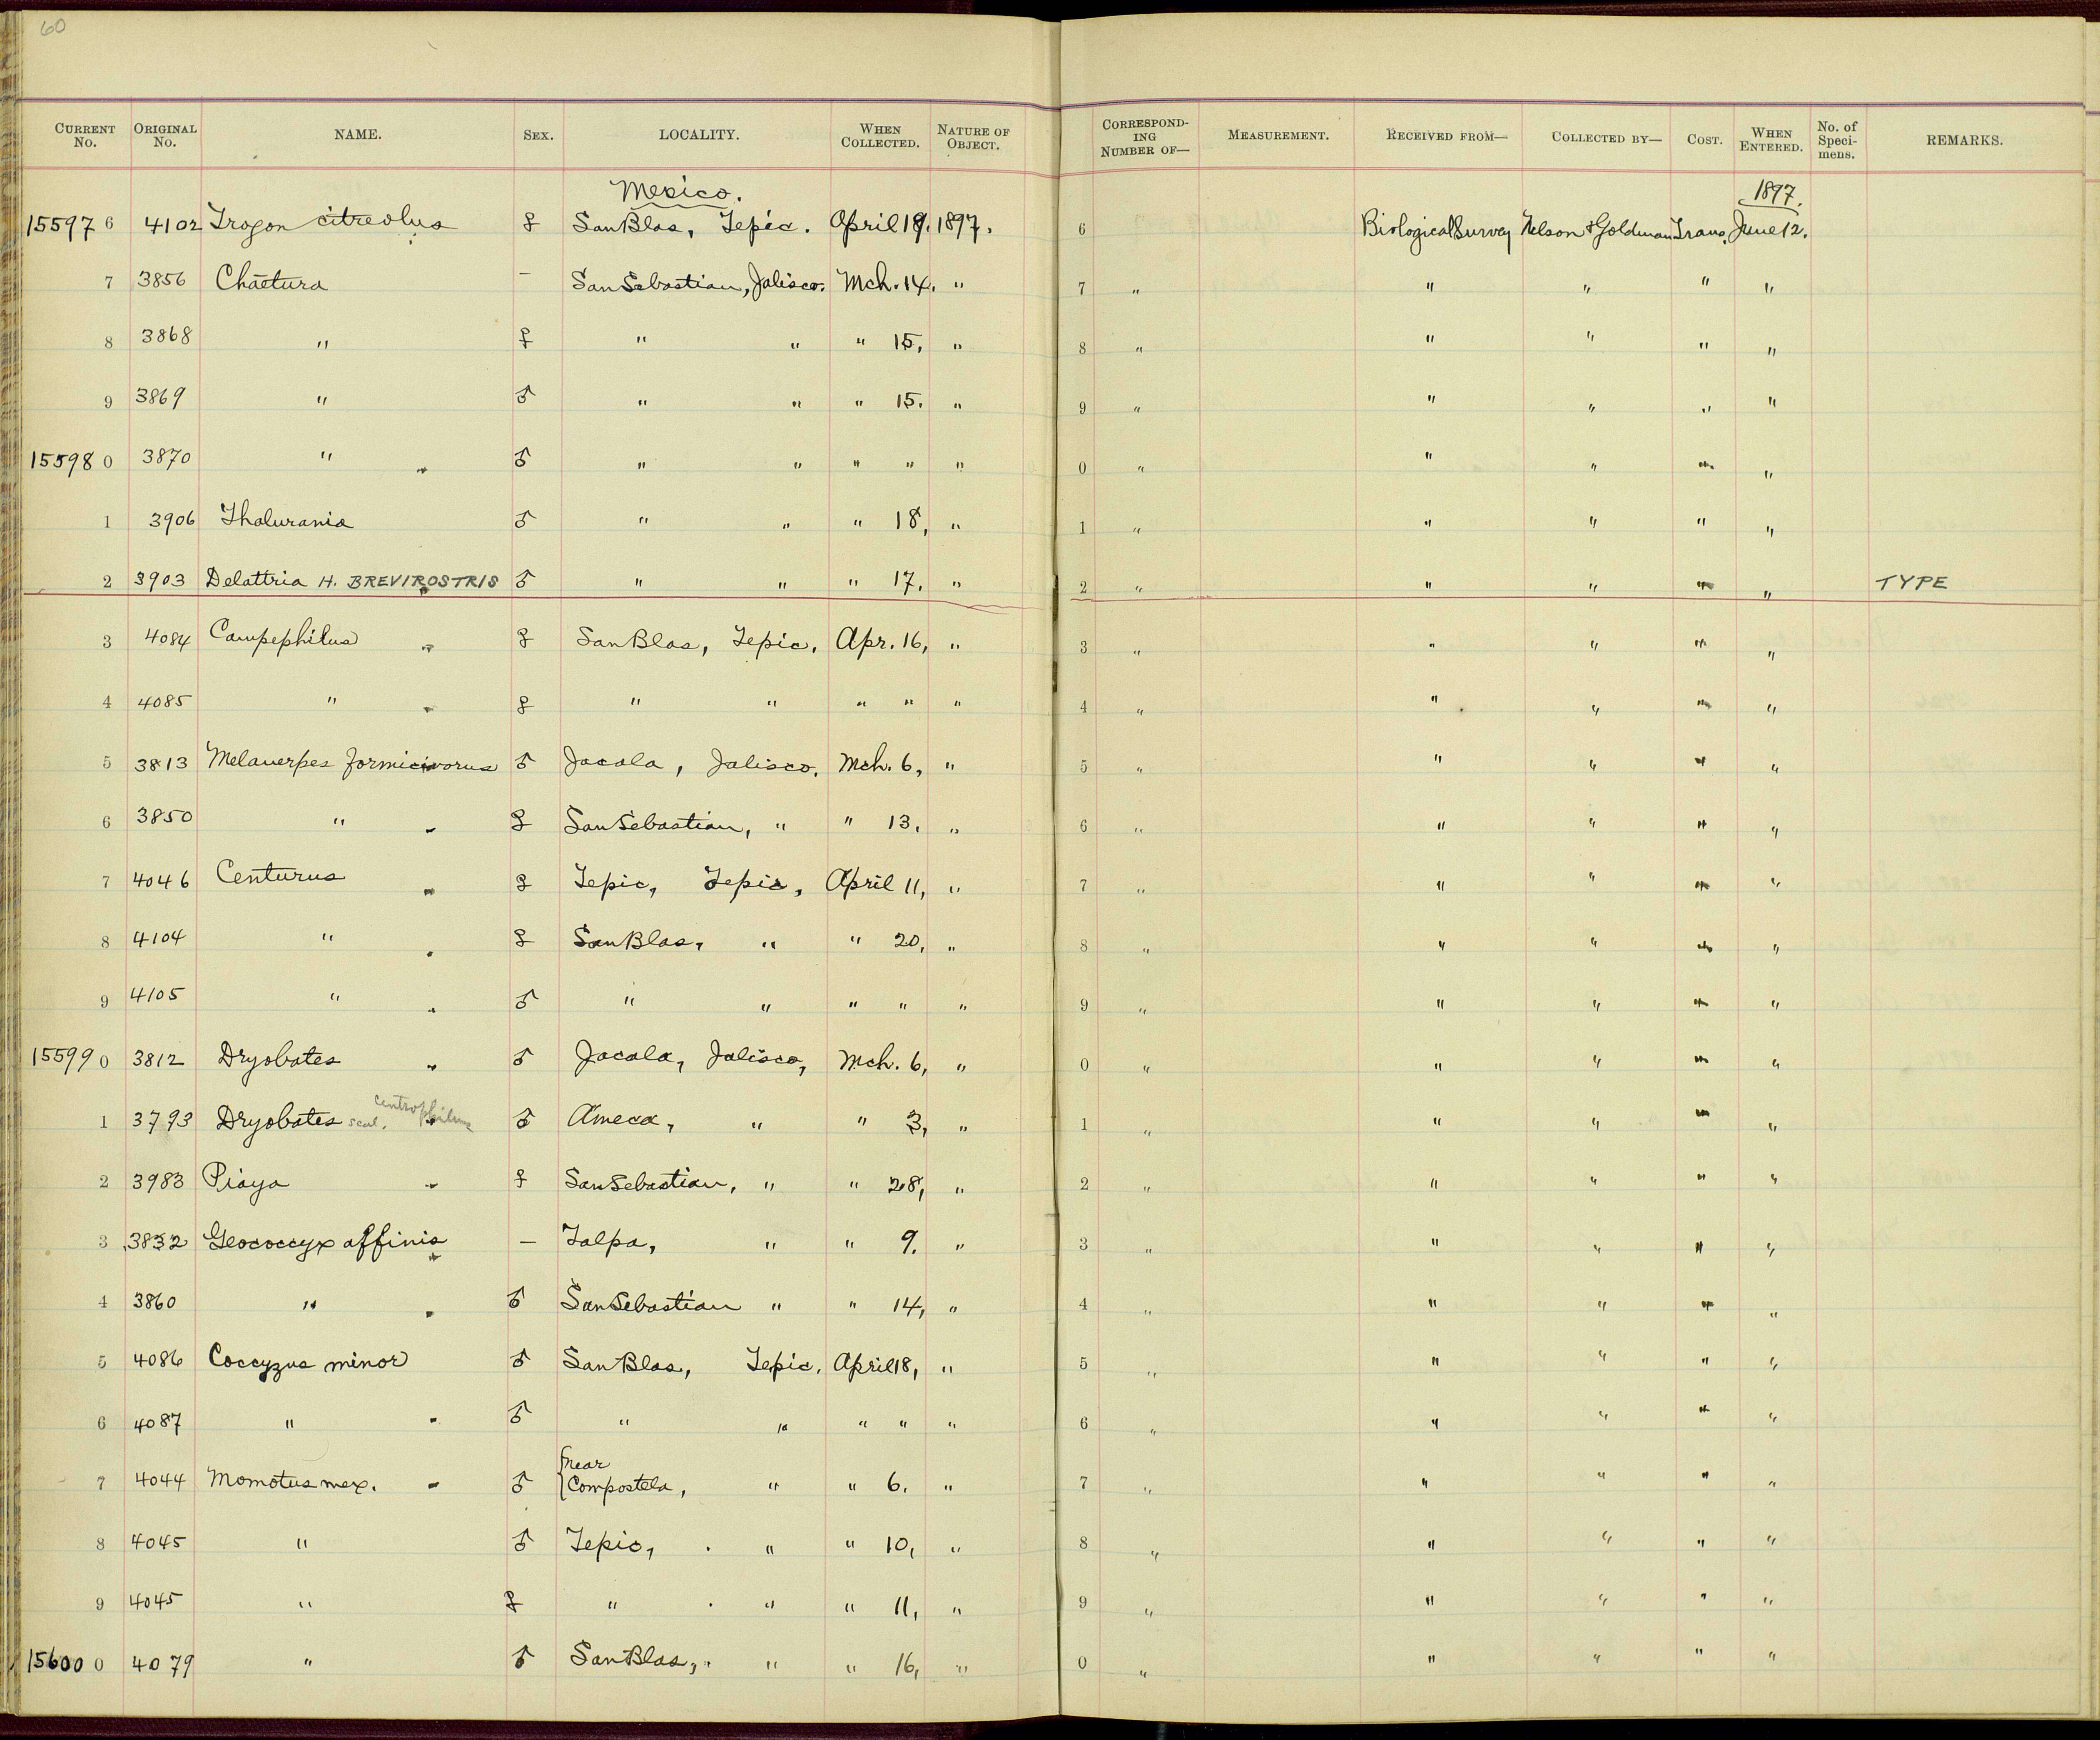 60
CURRENT No. ORIGINAL No. NAME. SEX. LOCALITY. WHEN COLLECTED. NATURE OF OBJECT. CORRESPONDING NUMBER OF— MEASUREMENT. RECEIVED FROM— COLLECTED BY— COST. WHEN ENTERED. No. of Specimens. REMARKS.
Mexico. 1897.
15597 6 4102 Trogon citreolus ♀ San Blas, Tepic. April 19. 1897. 6 Biological Survey Nelson & Goldman Trans. June 12.
7 3856 Chaetura — San Sebastian, Jalisco. Mch. 14, " 7 " " " " "
8 3868 " ♀ " " " 15, " 8 " " " " "
9 3869 " ♂ " " " 15. " 9 " " " " "
15598 0 3870 " " ♂ " " " " " 0 " " " " "
1 3906 Thalurania ♂ " " " 18, " 1 " " " " "
2 3903 Delattria H. BREVIROSTRIS ♂ " " " 17. " 2 " " " " " TYPE
3 4084 Campephilus " ♀ San Blas, Tepic, Apr. 16, " 3 " " " " "
4 4085 " " ♀ " " " " " 4 " " " " "
5 3813 Melanerpes formicivorus ♂ Jacala, Jalisco. Mch. 6, " 5 " " " " "
6 3850 " " ♀ San Sebastian, " " 13, " 6 " " " " "
7 4046 Centurus " ♀ Tepic, Tepic, April 11, " 7 " " " " "
8 4104 " " ♀ San Blas, " " 20, " 8 " " " " "
9 4105 " " ♂ " " " " " 9 " " " " "
15599 0 3812 Dryobates " ♂ Jacala, Jalisco, Mch. 6, " 0 " " " " "
1 3793 Dryobates scal. centrophilus ♂ Ameca, " " 3, " 1 " " " " "
2 3983 Piaya " ♀ San Sebastian, " " 28, " 2 " " " " "
3 3832 Geococcyx affinis " — Talpa, " " 9. " 3 " " " " "
4 3860 " " ♂ San Sebastian " " 14, " 4 " " " " "
5 4086 Coccyzus minor ♂ San Blas, Tepic, April 18, " 5 " " " " "
6 4087 " " ♂ " " " " " 6 " " " " "
7 4044 Momotus mex. " ♂ {near Compostela, " " 6. " 7 " " " " "
8 4045 " ♂ Tepic, " " 10, " 8 " " " " "
9 4045 " ♀ " " " 11, " 9 " " " " "
15600 0 4079 " ♂ San Blas, " " 16, " 0 " " " " "